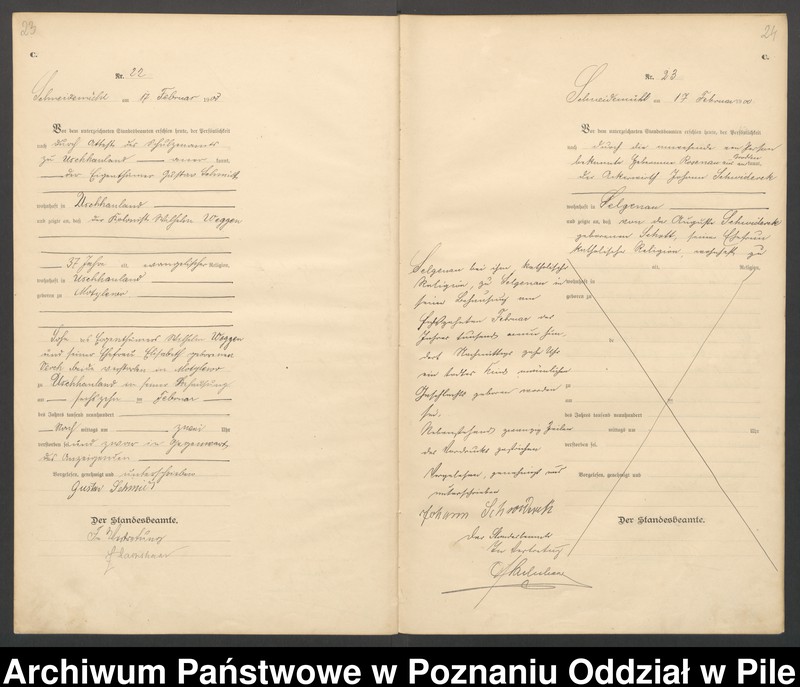 23
C.
Nr. 22
Schneidemühl am 17 Februar 1900
Vor dem unterzeichneten Standesbeamten erschien heute, der Persönlichkeit
nach durch Atteste des Schulzenamts
zu Uschhauland kannt,
der Eigenthümer Gustav Schmidt
wohnhaft in Uschhauland
und zeigte an, daß der Kolonist Wilhelm Weggen
37 Jahre alt, evangelischer Religion,
wohnhaft in Uschhauland
geboren zu Motylewo
Sohn des Eigenthümers Wilhelm Weggen
und seiner Ehefrau Elisabeth geborenen
beide verstorben in Motylewo
zu Uschhauland in seiner Behausung
am sechszehn ten Februar
des Jahres tausend neunhundert
Nach mittags um zwei Uhr
verstorben sei und zwar in Gegenwart
des Anzeigenden
Vorgelesen, genehmigt und unterschrieben
Gustav Schmidt
Der Standesbeamte.
In Vertretung
24
C.
Nr. 23
Schneidemühl am 17 Februar 1900
Vor dem unterzeichneten Standesbeamten erschien heute, der Persönlichkeit
nach durch die anwesende
bekannte Hebamme Rosenau
der Ackerwirth Johann
wohnhaft in Selgenau
und zeigte an, daß von der Auguste
geborenen Schott, seiner Ehefrau
katholischer Religion, wohnhaft zu
Selgenau bei ihm, katholischer
Religion, zu Selgenau in
seiner Behausung am
sechszehnten Februar des
Jahres tausend neunhun,
dert Nachmittags Uhr
ein todtes Kind männlichen
Geschlechts geboren worden
sei.
Nebenstehende zwanzig Zeilen
des Vordrucks gestrichen
Vorgelesen, genehmigt und
unterschrieben
Johann
Der Standesbeamte
In Vertretung
alt, Religion,
wohnhaft in
geboren zu
zu
zu
am ten
des Jahres tausend neunhundert
mittags um Uhr
verstorben sei.
Vorgelesen, genehmigt und
Der Standesbeamte.
Archiwum Państwowe w Poznaniu Oddział w Pile